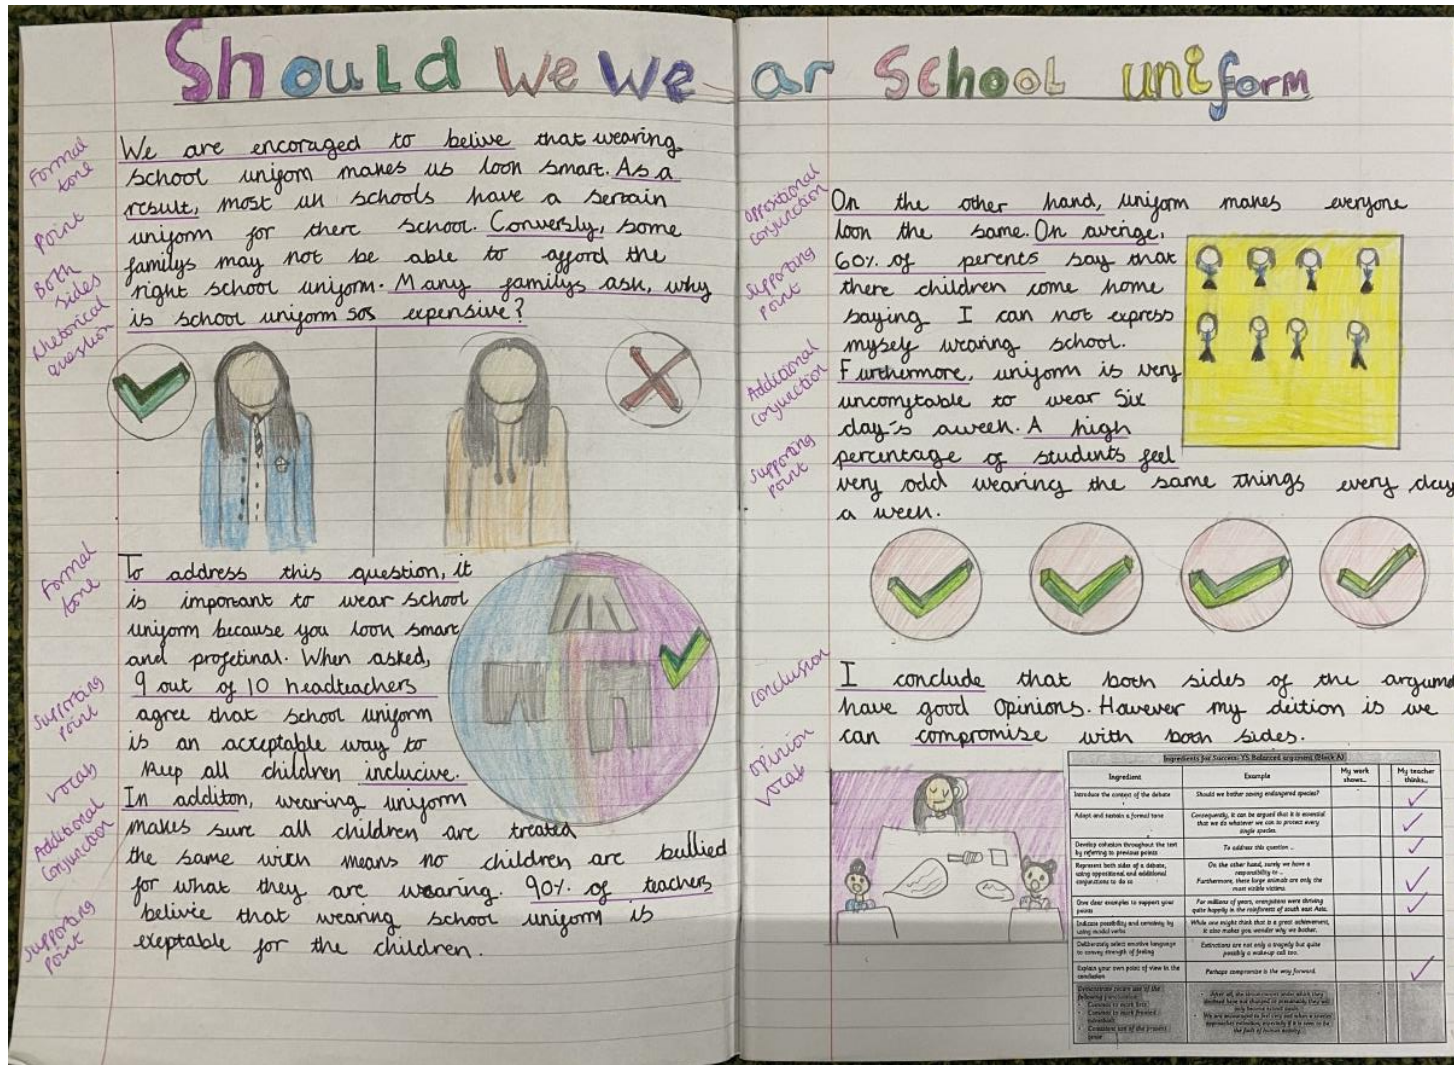 Should We We ar School uniform
Formal tone
Point
Both sides
Rhetorical question
We are encoraged to belive that wearing
school uniform makes us look smart. As a
result, most uk schools have a sertain
uniform for there school. Conversly, some
familys may not be able to afford the
right school uniform. Many familys ask, why
is school uniform sos expensive?
Formal tone
Supporting point
Vocab
Additional Conjunction
Supporting point
To address this question, it
is important to wear school
uniform because you look smart
and profetinal. When asked,
9 out of 10 headteachers
agree that school uniform
is an acceptable way to
keep all children inclucive.
In additon, wearing uniform
makes sure all children are treated
the same wich means no children are bullied
for what they are wearing. 90% of teachers
belivie that wearing school uniform is
exeptable for the children.
oppositional conjunction
Supporting point
Additional conjunction
Supporting point
On the other hand, uniform makes everyone
look the same. On averige,
60% of perents say that
there children come home
saying I can not express
myself wearing school.
Furthermore, uniform is very
uncomftable to wear Six
day's aweek. A high
percentage of students feel
very odd wearing the same things every day
a week.
Conclusion
Opinion
Vocab
I conclude that both sides of the argum
have good Opinions. However my dition is we
can compromise with both sides.
Ingredients for Success: Y5 Balanced argument (Block A)
Ingredient Example My work shows... My teacher thinks...
Introduce the context of the debate Should we bother saving endangered species?
Adapt and sustain a formal tone Consequently, it can be argued that it is essential that we do whatever we can to protect every single species.
Develop cohesion throughout the text by referring to previous points To address this question ...
Represent both sides of a debate, using oppositional and additional conjunctions to do so On the other hand, surely we have a responsibility to ... Furthermore, these large animals are only the most visible victims.
Give clear examples to support your points For millions of years, orangutans were thriving quite happily in the rainforests of south east Asia.
Indicate possibility and certainty by using modal verbs While one might think that is a great achievement, it also makes you wonder why we bother.
Deliberately select emotive language to convey strength of feeling Extinctions are not only a tragedy but quite possibly a wake-up call too.
Explain your own point of view in the conclusion Perhaps compromise is the way forward.
Demonstrate recent use of the following punctuation:
Commas to mark lists
Commas to mark fronted adverbials